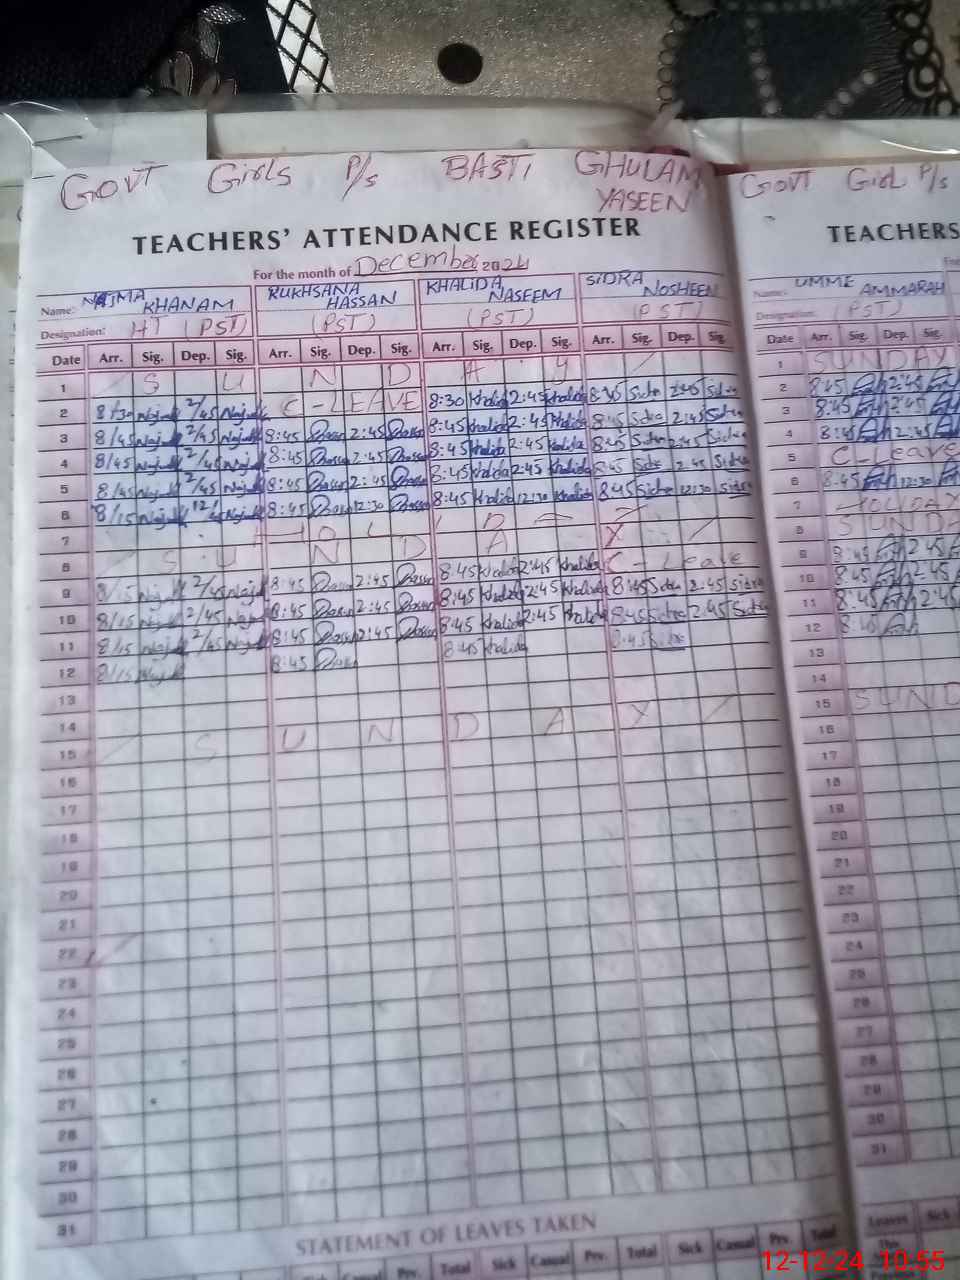 GOVT Girls P/s BASTI GHULAM YASEEN
TEACHERS' ATTENDANCE REGISTER
For the month of December 2024
Name: NAJMA KHANAM RUKHSANA HASSAN KHALIDA NASEEM SIDRA NOSHEEN
Designation: HT (PST) (PST) (PST) (PST)
Date Arr. Sig. Dep. Sig. Arr. Sig. Dep. Sig. Arr. Sig. Dep. Sig. Arr. Sig. Dep. Sig.
1 S U N D A Y
2 8/30 2/45 C-LEAVE 8:30 Khalida 2:45 Khalida Sidra 2:45 Sidra
3 8/45 2/45 8:45 2:45 8:45 Khalida 2:45 Khalida 8:45 Sidra 2:45 Sidra
4 8/45 2/45 8:45 2:45 8:45 Khalida 2:45 Khalida 8:45 Sidra 2:45 Sidra
5 8/45 2/45 8:45 2:45 8:45 Khalida 2:45 Khalida 8:45 Sidra 2:45 Sidra
6 8/15 8:45 12:30 8:45 Khalida 12:30 Khalida 8:45 Sidra 12:30 Sidra
7 H O L I D A Y
8 S U N D A Y
9 8/15 2/45 8:45 2:45 8:45 Khalida 2:45 Khalida C-Leave
10 8/15 2/45 8:45 2:45 8:45 Khalida 2:45 Khalida 8:45 Sidra 2:45 Sidra
11 8/15 2/45 8:45 2:45 8:45 Khalida 2:45 Khalida 8:45 Sidra 2:45 Sidra
12 8/15 8:45 8:45 Khalida 8:45 Sidra
13
14
15 S U N D A Y
16
17
18
19
20
21
22
23
24
25
26
27
28
29
30
31
STATEMENT OF LEAVES TAKEN
Sick Casual Prv. Total Sick Casual Prv. Total Sick Casual Prv. Total
GOVT Girl P/s
TEACHERS
Name: UMME AMMARAH
Designation: (PST)
Date Arr. Sig. Dep.
1 SUNDAY
2 8:45 2:45
3 8:45 2:45
4 8:45 2:45
5 C-Leave
6 8:45 12:30
7 HOLIDAY
8 SUNDA
9 8:45 2:45
10 8:45 2:45
11 8:45 2:45
12 8:45
13
14
15 SUND
16
17
18
19
20
21
22
23
24
25
26
27
28
29
30
31
Leaves Sick
12-12-24 10:55